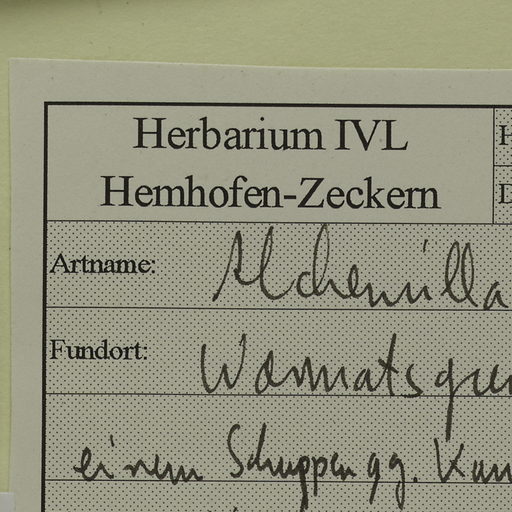 Herbarium IVL
Hemhofen-Zeckern
Artname: Alchemilla
Fundort:
einem Schuppen gg.